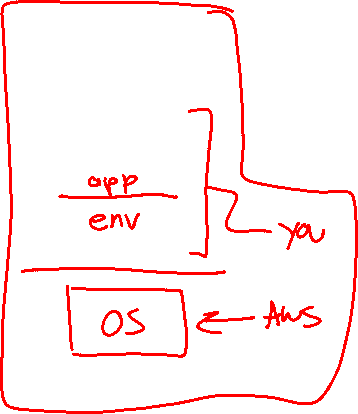 app
env
you
OS
AWS